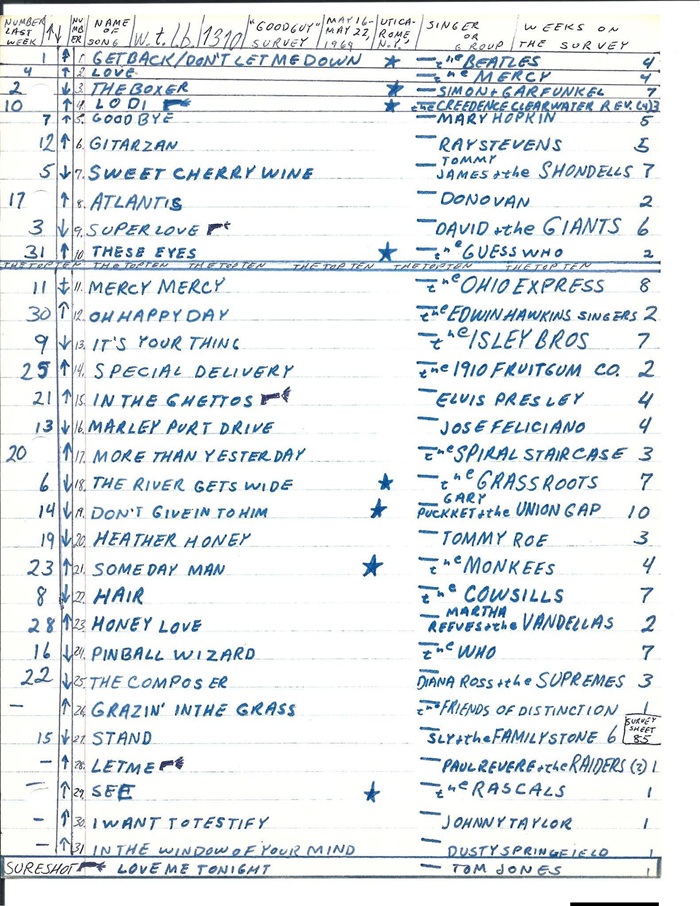 NUMBER LAST WEEK ↑↓ NUMBER NAME OF SONG W.t.l.b. 1310 "GOODGUY" SURVEY MAY 16- MAY 22, 1969 UTICA- ROME N.Y. SINGER OR GROUP WEEKS ON THE SURVEY
1 ↑ 1. GET BACK/DON'T LET ME DOWN ★ — the BEATLES 4
4 ↑ 2. LOVE — the MERCY 4
2 ↓ 3. THE BOXER ★ — SIMON + GARFUNKEL 7
10 ↑ 4. LODI ★ the CREEDENCE CLEARWATER REV. (4) 3
7 ↑ 5. GOODBYE — MARY HOPKIN 5
12 ↑ 6. GITARZAN — RAY STEVENS 5
5 ↓ 7. SWEET CHERRY WINE — TOMMY JAMES + the SHONDELLS 7
17 ↑ 8. ATLANTIS — DONOVAN 2
3 ↓ 9. SUPER LOVE — DAVID + the GIANTS 6
31 ↑ 10. THESE EYES ★ — the GUESS WHO 2
THE TOP TEN THE TOP TEN THE TOP TEN THE TOP TEN THE TOP TEN THE TOP TEN
11 ↕ 11. MERCY MERCY — the OHIO EXPRESS 8
30 ↑ 12. OH HAPPY DAY — the EDWIN HAWKINS SINGERS 2
9 ↓ 13. IT'S YOUR THING — the ISLEY BROS 7
25 ↑ 14. SPECIAL DELIVERY — the 1910 FRUITGUM CO. 2
21 ↑ 15. IN THE GHETTOS — ELVIS PRESLEY 4
13 ↓ 16. MARLEY PURT DRIVE — JOSE FELICIANO 4
20 ↑ 17. MORE THAN YESTERDAY — the SPIRAL STAIRCASE 3
6 ↓ 18. THE RIVER GETS WIDE ★ — the GRASS ROOTS 7
14 ↓ 19. DON'T GIVE IN TO HIM ★ — GARY PUCKKET + the UNION GAP 10
19 ↓ 20. HEATHER HONEY — TOMMY ROE 3
23 ↑ 21. SOMEDAY MAN ★ — the MONKEES 4
8 ↓ 22. HAIR — the COWSILLS 7
28 ↑ 23. HONEY LOVE — MARTHA REEVES + the VANDELLAS 2
16 ↓ 24. PINBALL WIZARD — the WHO 7
22 ↓ 25. THE COMPOSER DIANA ROSS + the SUPREMES 3
— ↑ 26. GRAZIN' IN THE GRASS — the FRIENDS OF DISTINCTION 1
15 ↓ 27. STAND — SLY + the FAMILY STONE 6 SURVEY SHEET 85
— ↑ 28. LET ME — PAUL REVERE + the RAIDERS (2) 1
— ↑ 29. SEE ★ — the RASCALS 1
— ↑ 30. I WANT TO TESTIFY — JOHNNY TAYLOR 1
— ↑ 31. IN THE WINDOW OF YOUR MIND — DUSTY SPRINGFIELD 1
SURESHOT LOVE ME TONIGHT — TOM JONES 1